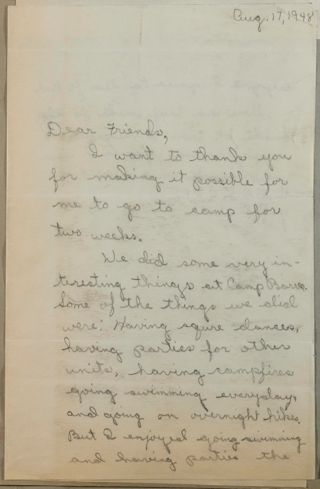 Aug. 17, 1948
Dear Friends,
I want to thank you
for making it possible for
me to go to camp for
two weeks.
We did some very in-
teresting things at Camp
Some of the things we did
were: Having squire dances,
having parties for other
units, having campfires
going swimming everyday,
and going on overnight hikes.
But I enjoyed going swimming
and having parties the